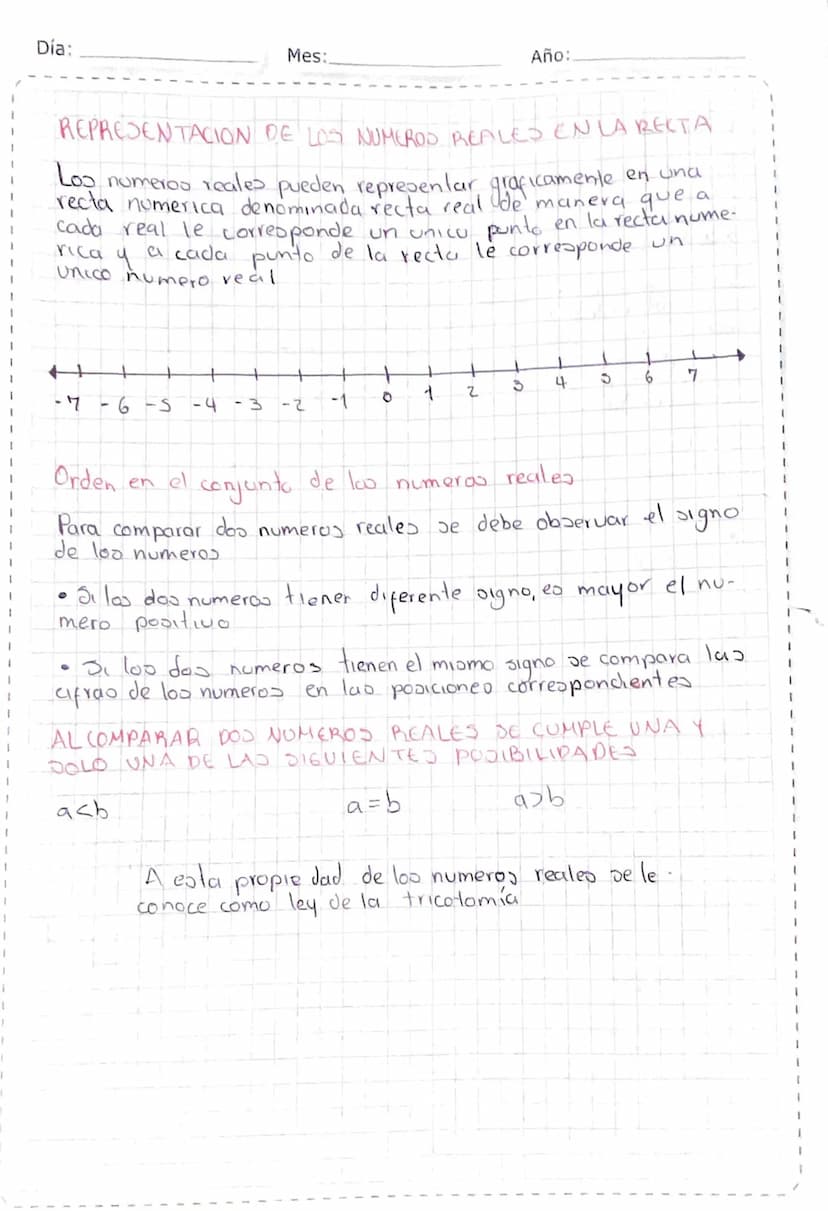 Día: Mes: Año:
REPRESENTACION DE LOS NUMEROS REALES EN LA RECTA
Los numeros reales pueden representar graficamente en una
recta numerica denominada recta real de manera que a
cada real le corresponde un unico punto en la recta nume-
rica y a cada punto de la recta le corresponde un
unico numero real
-7 -6 -5 -4 -3 -2 -1 0 1 2 3 4 5 6 7
Orden en el conjunto de los numeros reales
Para comparar dos numeros reales se debe observar el signo
de los numeros
• Si los dos numeros tiener diferente signo, es mayor el nu-
mero positivo
• Si los dos numeros tienen el mismo signo se compara las
cifras de los numeros en las posiciones correspondientes
AL COMPARAR DOS NUMEROS REALES SE CUMPLE UNA Y
SOLO UNA DE LAS SIGUIENTES POSIBILIDADES
a<b a=b a>b
A esta propiedad de los numeros reales se le
conoce como ley de la tricotomía